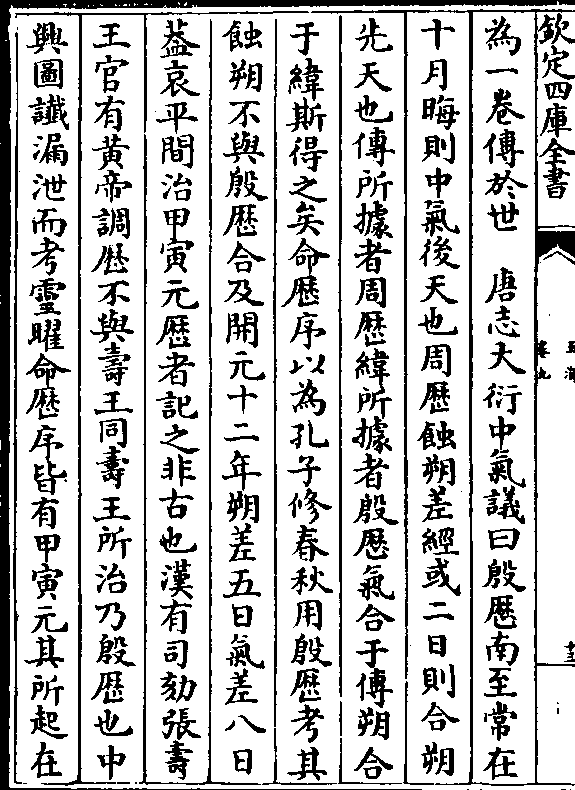 欽定四庫全書
玉海
卷九
為一卷傳於世　唐志大衍中氣議曰殷厯南至常在
十月晦則中氣後天也周厯蝕朔差經或二日則合朔
先天也傳所據者周厯緯所據者殷厯氣合于傳朔合
于緯斯得之矣命厯序以為孔子修春秋用殷厯考其
蝕朔不與殷厯合及開元十二年朔差五日氣差八日
葢哀平間治甲寅元厯者記之非古也漢有司劾張壽
王官有黃帝調厯不與壽王同壽王所治乃殷厯也中
興圖讖漏泄而考靈曜命厯序皆有甲寅元其所起在